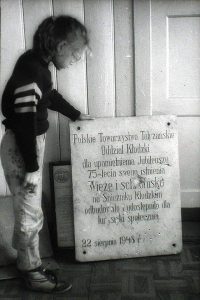 Polskie Towarzystwo Tatrzańskie
Oddział Kłodzki
dla upamiętnienia Jubileuszu
75-lecia swego istnienia
Wieżę i schronisko
na Śnieżniku Kłodzkim
odbudowało i udostępniło dla
turystyki społecznej
22 sierpnia 1948 r.